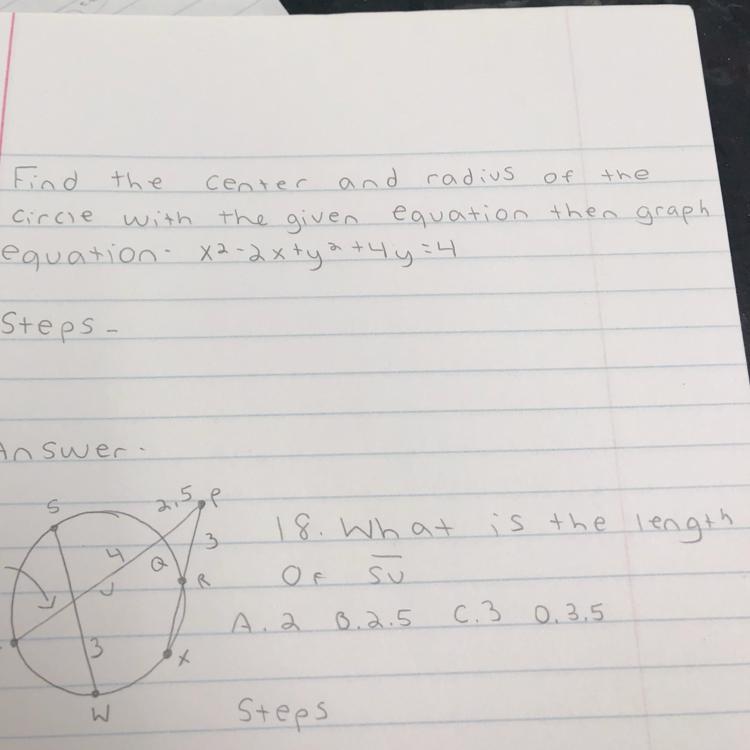 Find the center and radius of the
circle with the given equation then graph
equation- x²-2x+y²+4y=4
Steps-
Answer-
S
2.5 P
4
3
Q
R
U
3
X
W
18. What is the length
OF S̅U̅
A. 2 B. 2.5 C. 3 D. 3.5
Steps